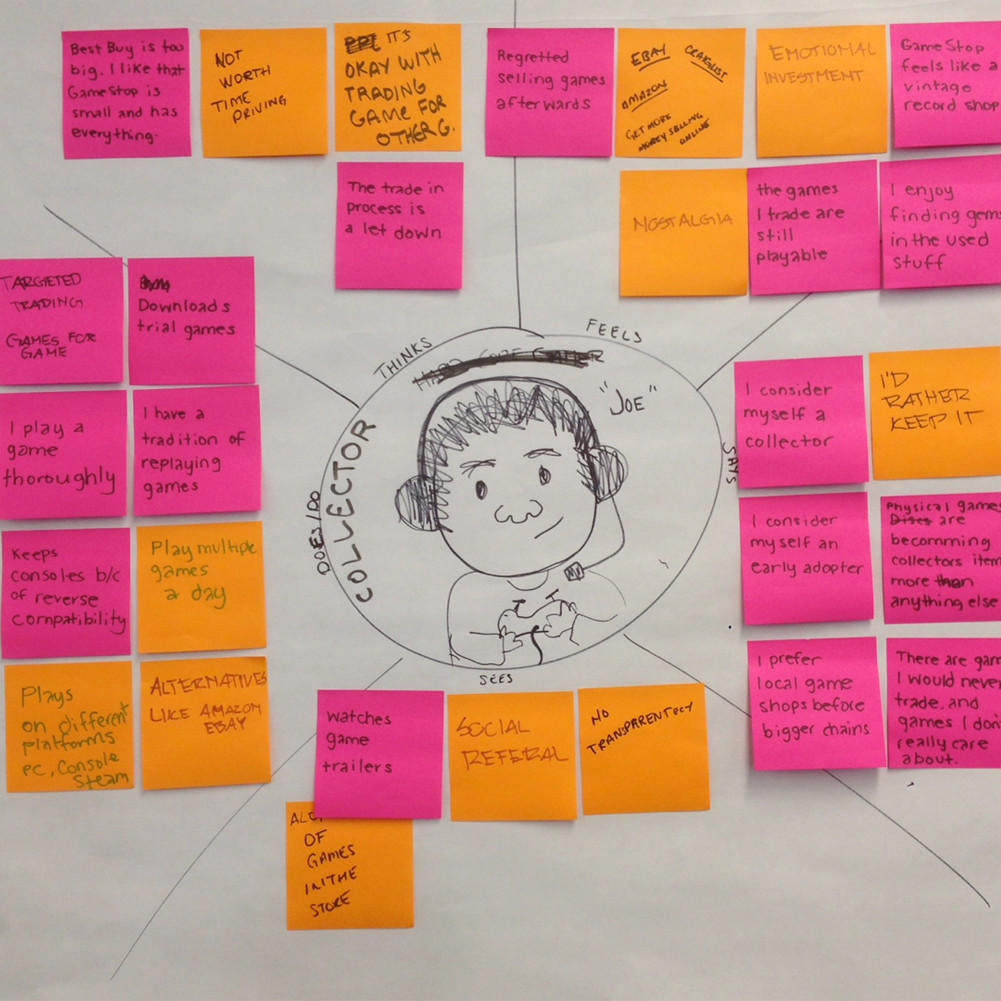 Best Buy is too
big. I like that
GameStop is
small and has
everything.
NOT
WORTH
TIME
DRIVING
IT'S
OKAY WITH
TRADING
GAME FOR
OTHER G.
The trade in
process is
a let down
Regretted
selling games
afterwards
EBAY
CRAIGLIST
AMAZON
GET MORE
MONEY SELLING
ONLINE
EMOTIONAL
INVESTMENT
GameStop
feels like a
vintage
record shop
NOSTALGIA
the games
I trade are
still
playable
I enjoy
finding gems
in the used
stuff
TARGETED
TRADING
GAMES FOR
GAME
Downloads
trial games
I play a
game
thoroughly
I have a
tradition of
replaying
games
Keeps
consoles b/c
of reverse
compatibility
Play multiple
games
a day
Plays
on different
platforms
pc, Console
Steam
ALTERNATIVES
LIKE AMAZON
EBAY
THINKS
FEELS
SAYS
SEES
DOES/DO
COLLECTOR
"JOE"
I consider
myself a
collector
I'D
RATHER
KEEP IT
I consider
myself an
early adopter
Physical games
Discs are
becomming
collectors item
more than
anything else
I prefer
local game
shops before
bigger chains
There are gam
I would never
trade. and
games I don
really care
about.
watches
game
trailers
SOCIAL
REFERAL
NO
TRANSPARENTCY
OF
GAMES
IN THE
STORE